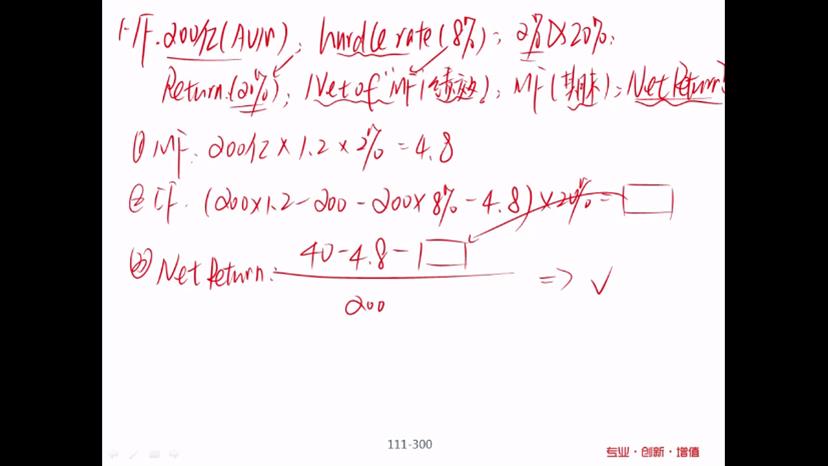 HF. 200亿(AUM); hurdle rate(8%); 2% & 20%;
Return.(20%); Net of "MF"(绩效); MF(期末); Net Return?
① MF. 200亿 × 1.2 × 2% = 4.8
② IF. (200×1.2 - 200 - 200×8% - 4.8) × 20% =
③ Net Return: 40 - 4.8 -
200
=> √
111-300
专业·创新·增值